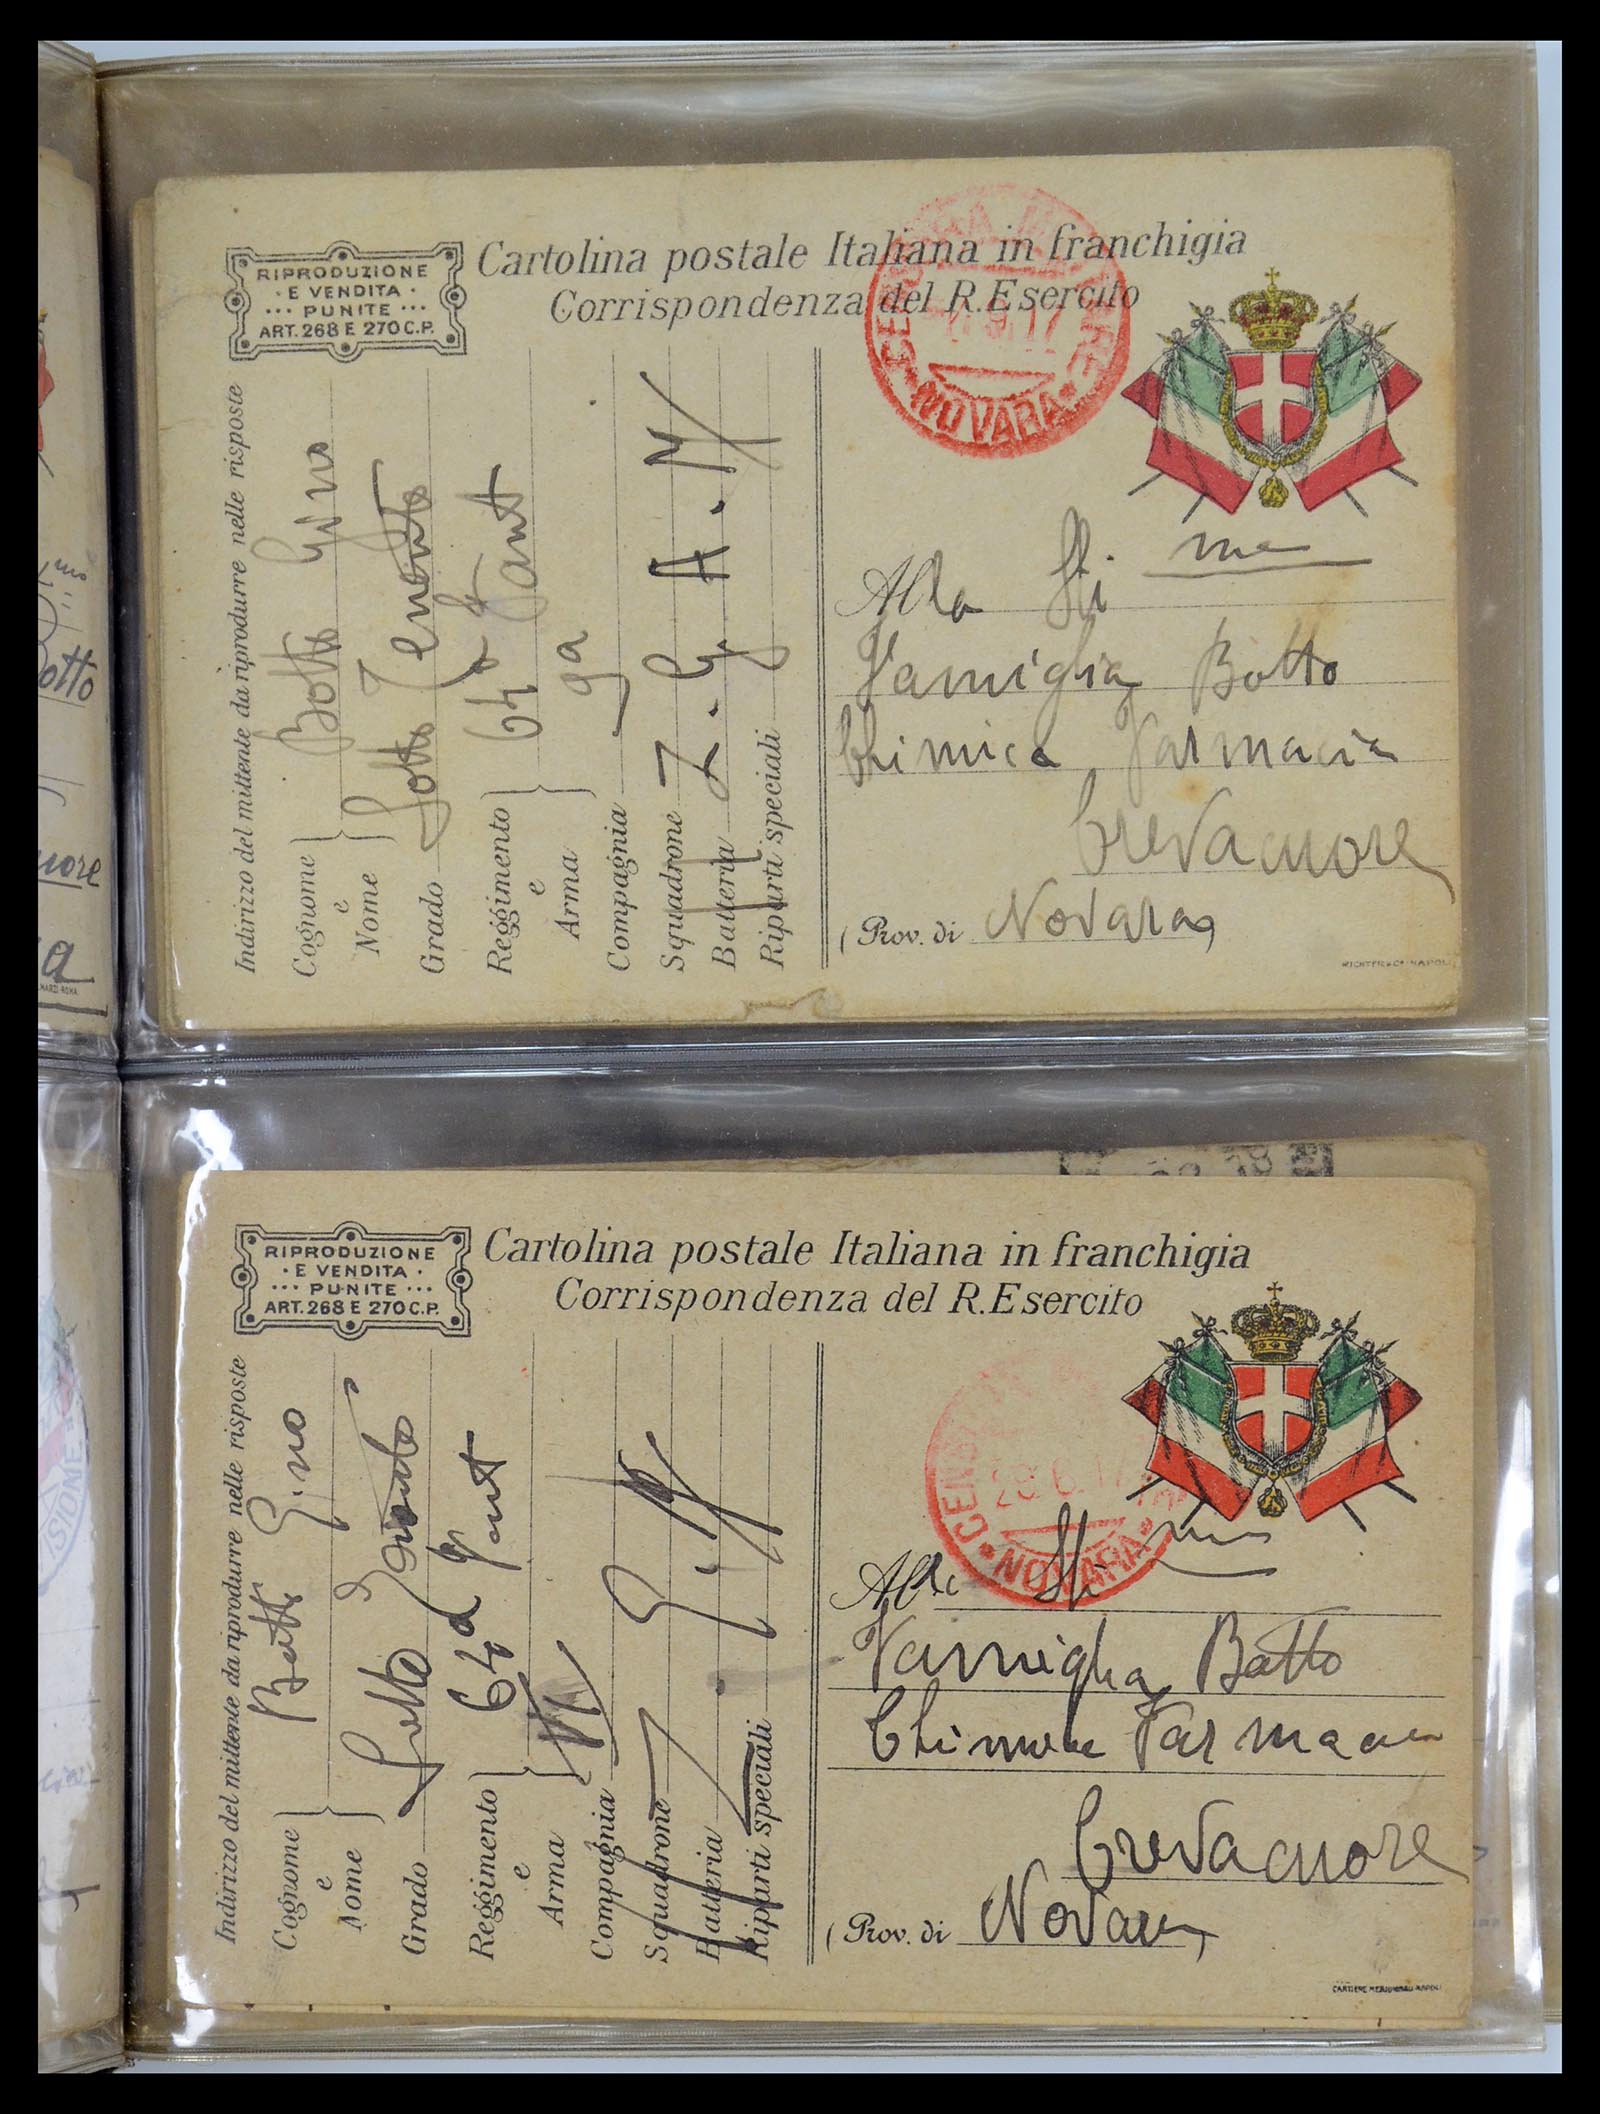 RIPRODUZIONE
· E VENDITA ·
··· PUNITE ···
ART. 268 E 270 C.P.
Cartolina postale Italiana in franchigia
Corrispondenza del R. Esercito
NOVARA
Indirizzo del mittente da riprodurre nelle risposte
Cognome e Nome Botto Gino
Grado Sotto Tenente
Reggimento e Arma 64a Fant
Compagnia 9a
Squadrone
Batteria Z. G. A. M
Riparti speciali
Alla Sti ma
Famiglia Botto
Chimica Farmacia
Crevacuore
(Prov. di Novara
RICHTER & C. NAPOLI
RIPRODUZIONE
· E VENDITA ·
··· PUNITE ···
ART. 268 E 270 C.P.
Cartolina postale Italiana in franchigia
Corrispondenza del R. Esercito
NOVARA
Indirizzo del mittente da riprodurre nelle risposte
Cognome e Nome Botto Gino
Grado Sotto
Reggimento e Arma 64a Fant
Compagnia
Squadrone
Batteria
Riparti speciali
Alla Sti ma
Famiglia Botto
Chimica Farmacia
Crevacuore
(Prov. di Novara
CARTIERE MERIDIONALI-NAPOLI
otto
uore
a